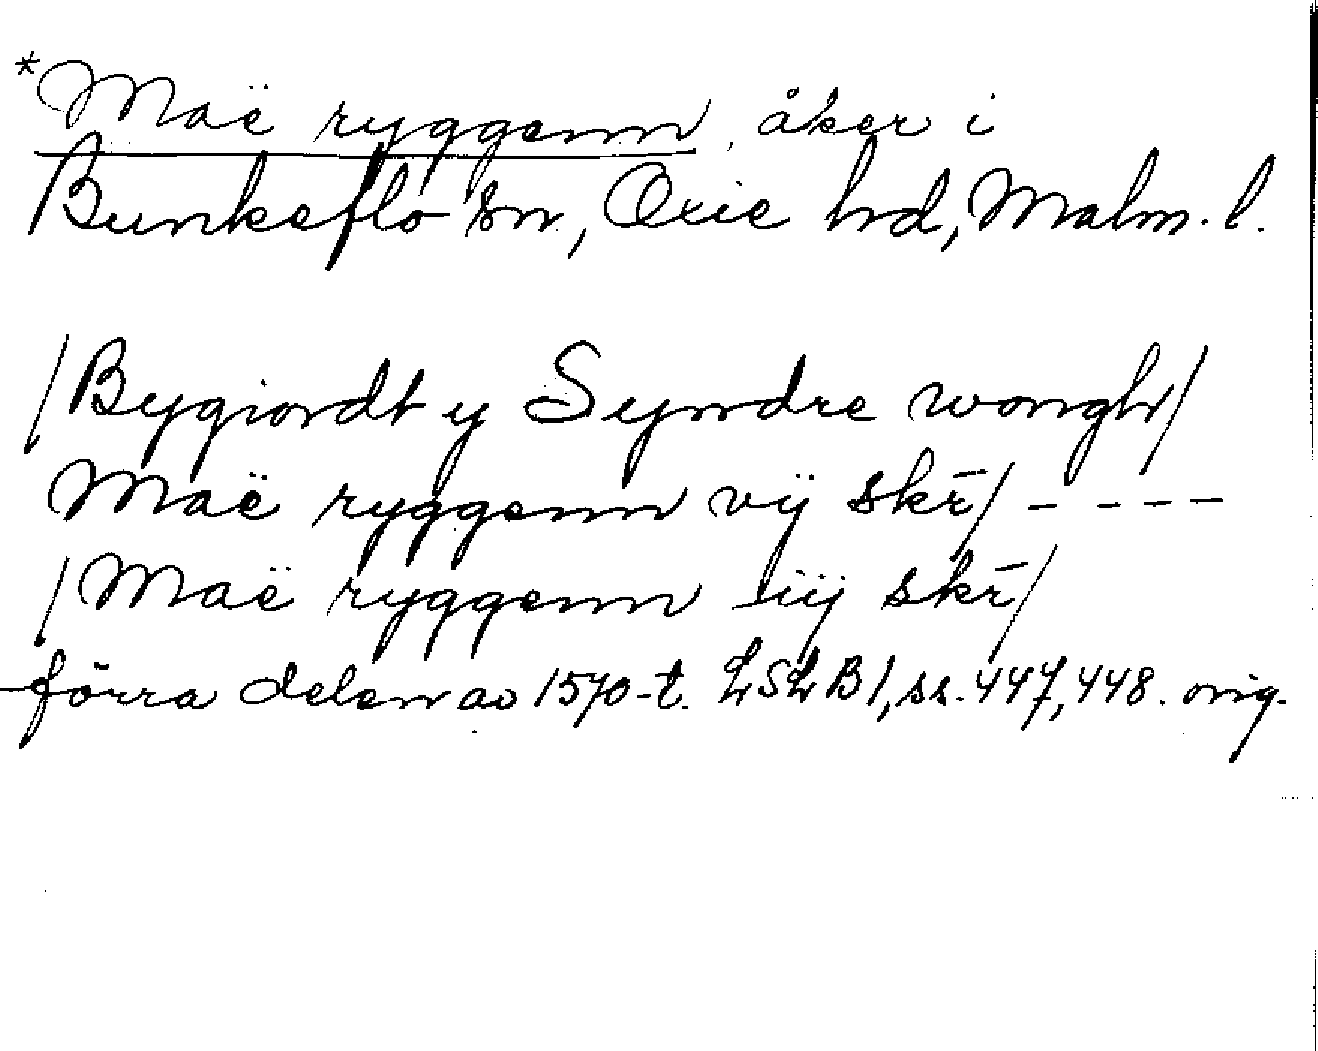 *Maë ryggenn, åker i
Bunkeflo sn, Oxie hd, Malm. l.
/Bygiordt y Syndre wongh/
Maë ryggenn vÿ skr̄/ - - - -
/Maë ryggenn iÿ skr̄/
förra delen av 1570-t. LSLB1, ss. 447, 448. orig.